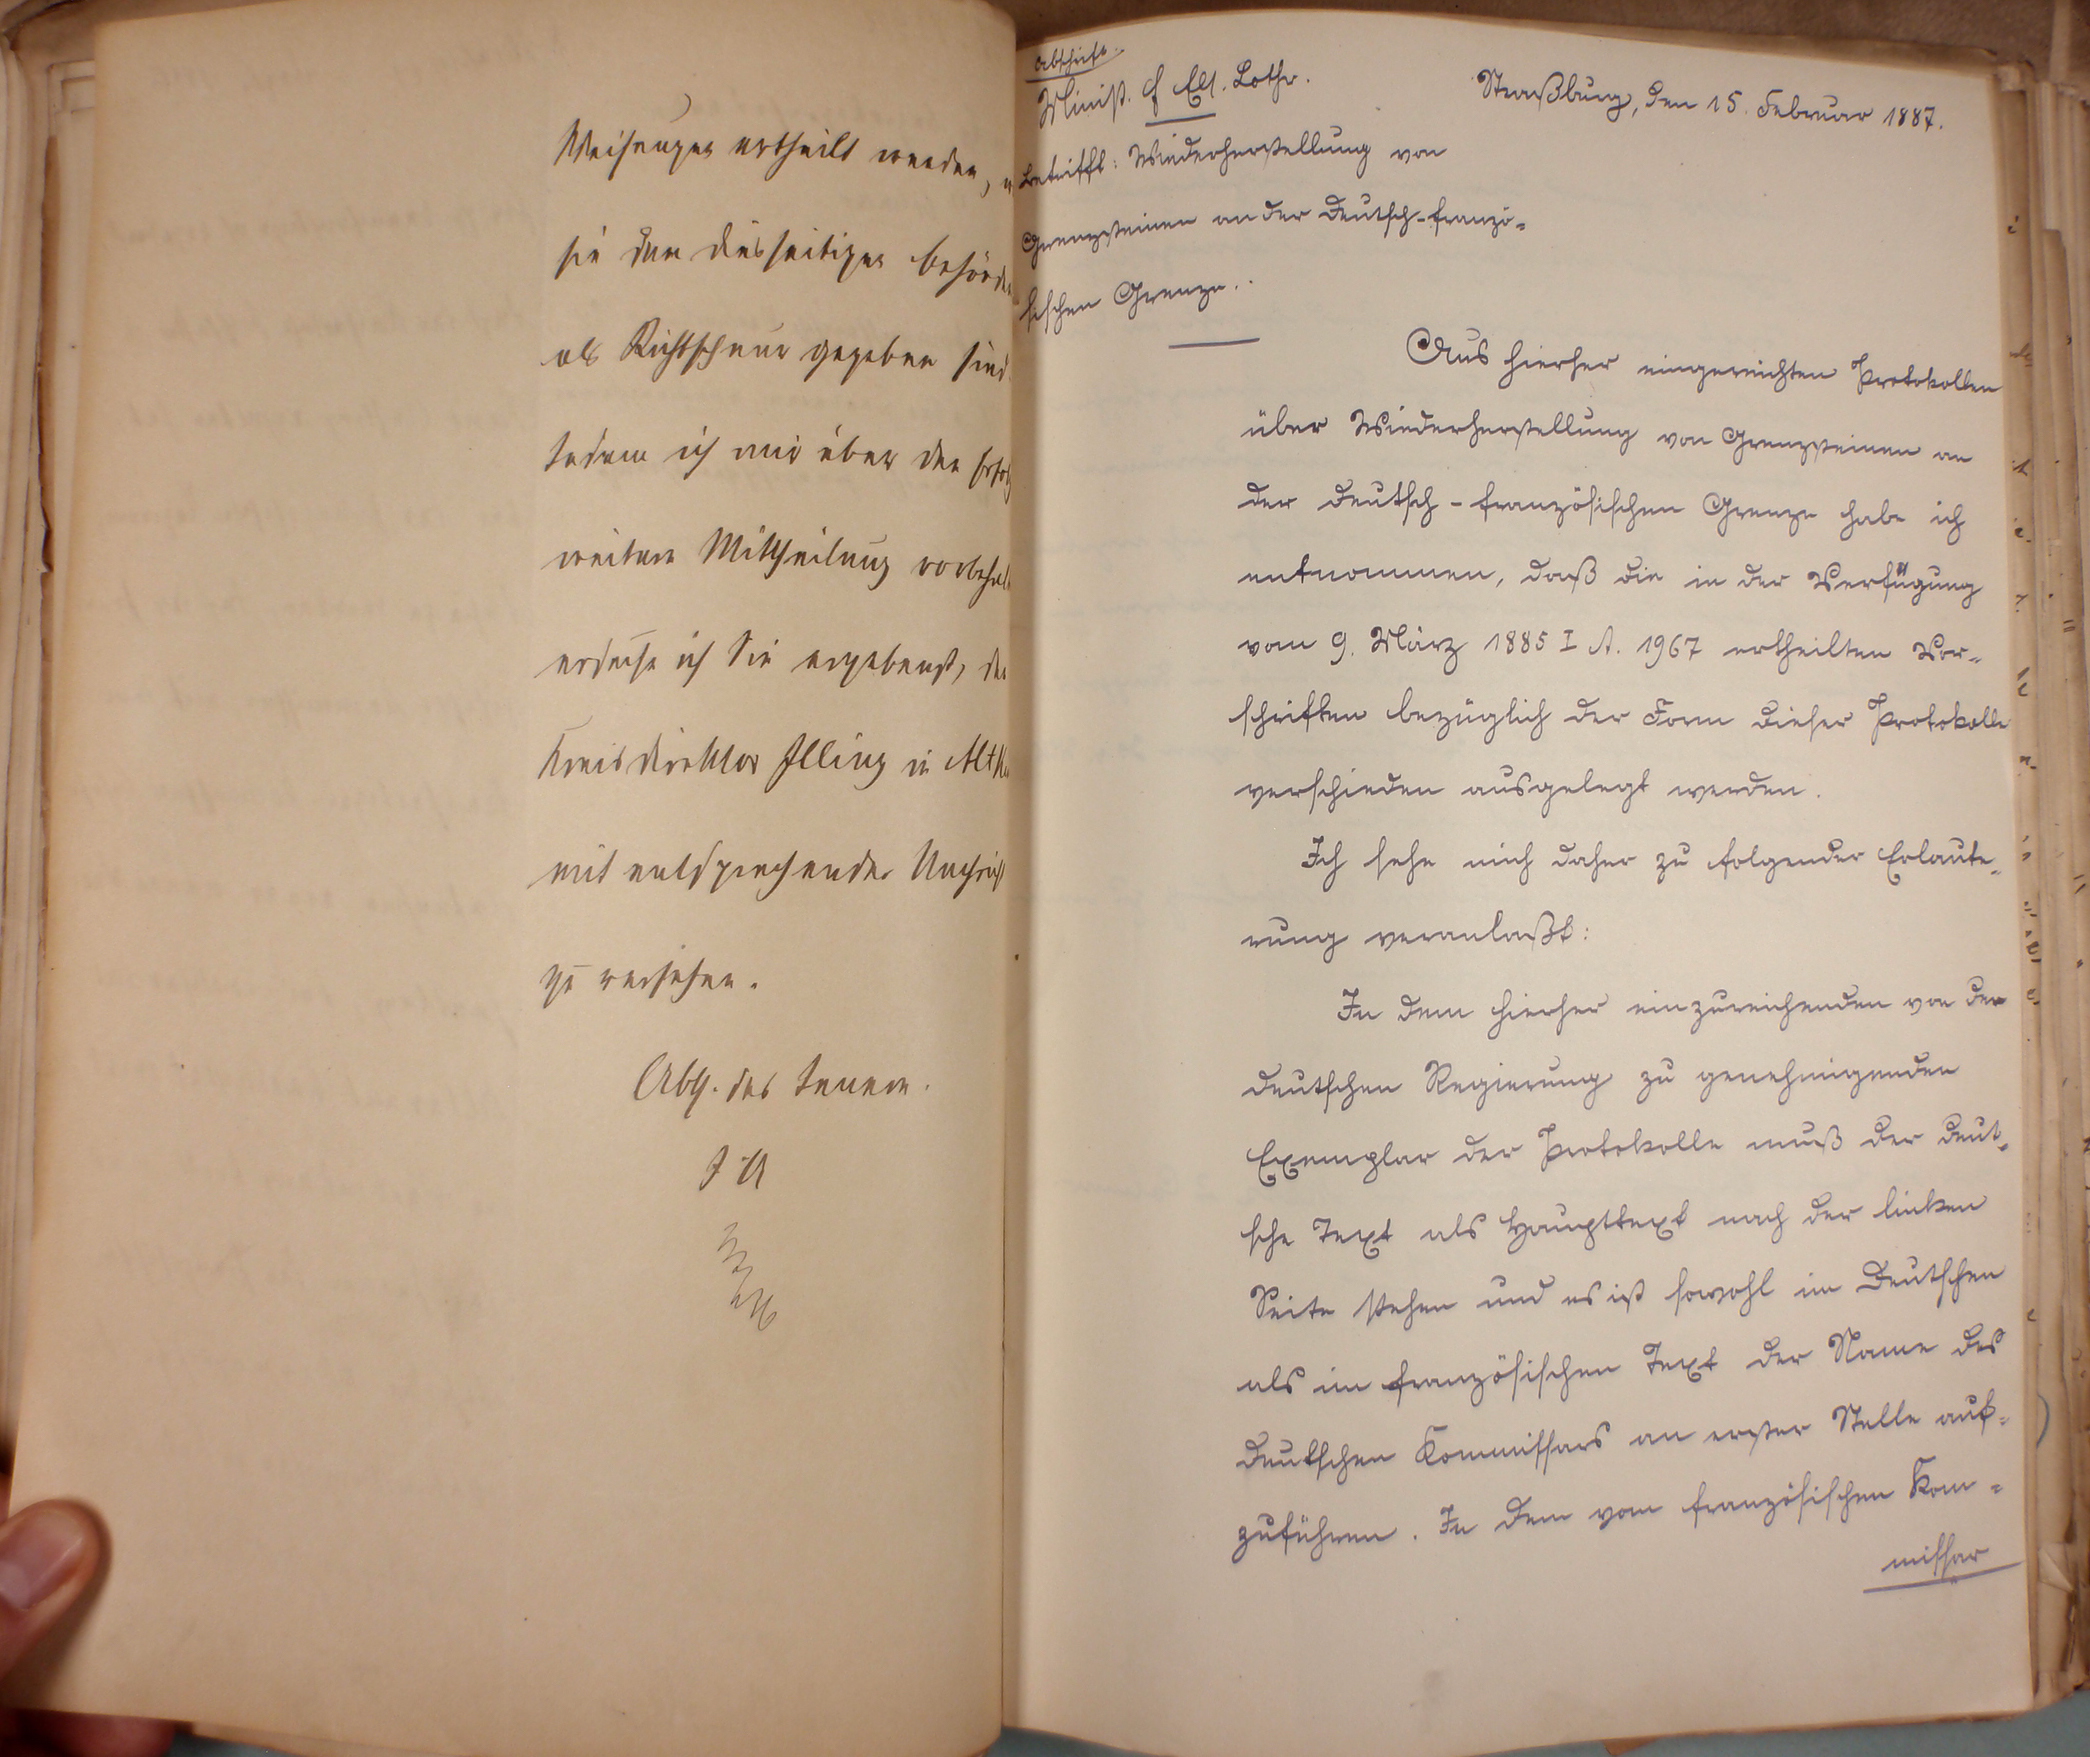 Weisungen ertheilt werden,
sie den diesseitigen Behörden
als Richtschnur gegeben sind.
Indem ich mir über den Erfolg
weitere Mittheilung vorbehalte
ersuche ich Sie ergebenst, den
Kreisdirektor Illing in
mit entsprechender Nachricht
zu versehen.
Abth. des Innern.
I A
Abschrift.
Minist. f Els. Lothr.
Straßburg, den 15. Februar 1887.
Betrifft: Wiederherstellung von
Grenzsteinen an der Deutsch-franzö-
sischen Grenze.
Aus hierher eingereichten Protokollen
über Wiederherstellung von Grenzsteinen an
der Deutsch-französischen Grenze habe ich
entnommen, daß die in der Verfügung
vom 9. März 1885 I A. 1967 ertheilten Vor-
schriften bezüglich der Form dieser Protokolle
verschieden ausgelegt werden.
Ich sehe mich daher zu folgender Erlaute-
rung veranlaßt:
In dem hierher einzureichenden von der
deutschen Regierung zu genehmigenden
Exemplar der Protokolle muß der deut-
sche Text als Haupttext nach der linken
Seite stehen und es ist sowohl im Deutschen
als im französischen Text der Name des
Deutschen Kommissars an erster Stelle auf-
zuführen. In dem vom französischen Kom-
missar